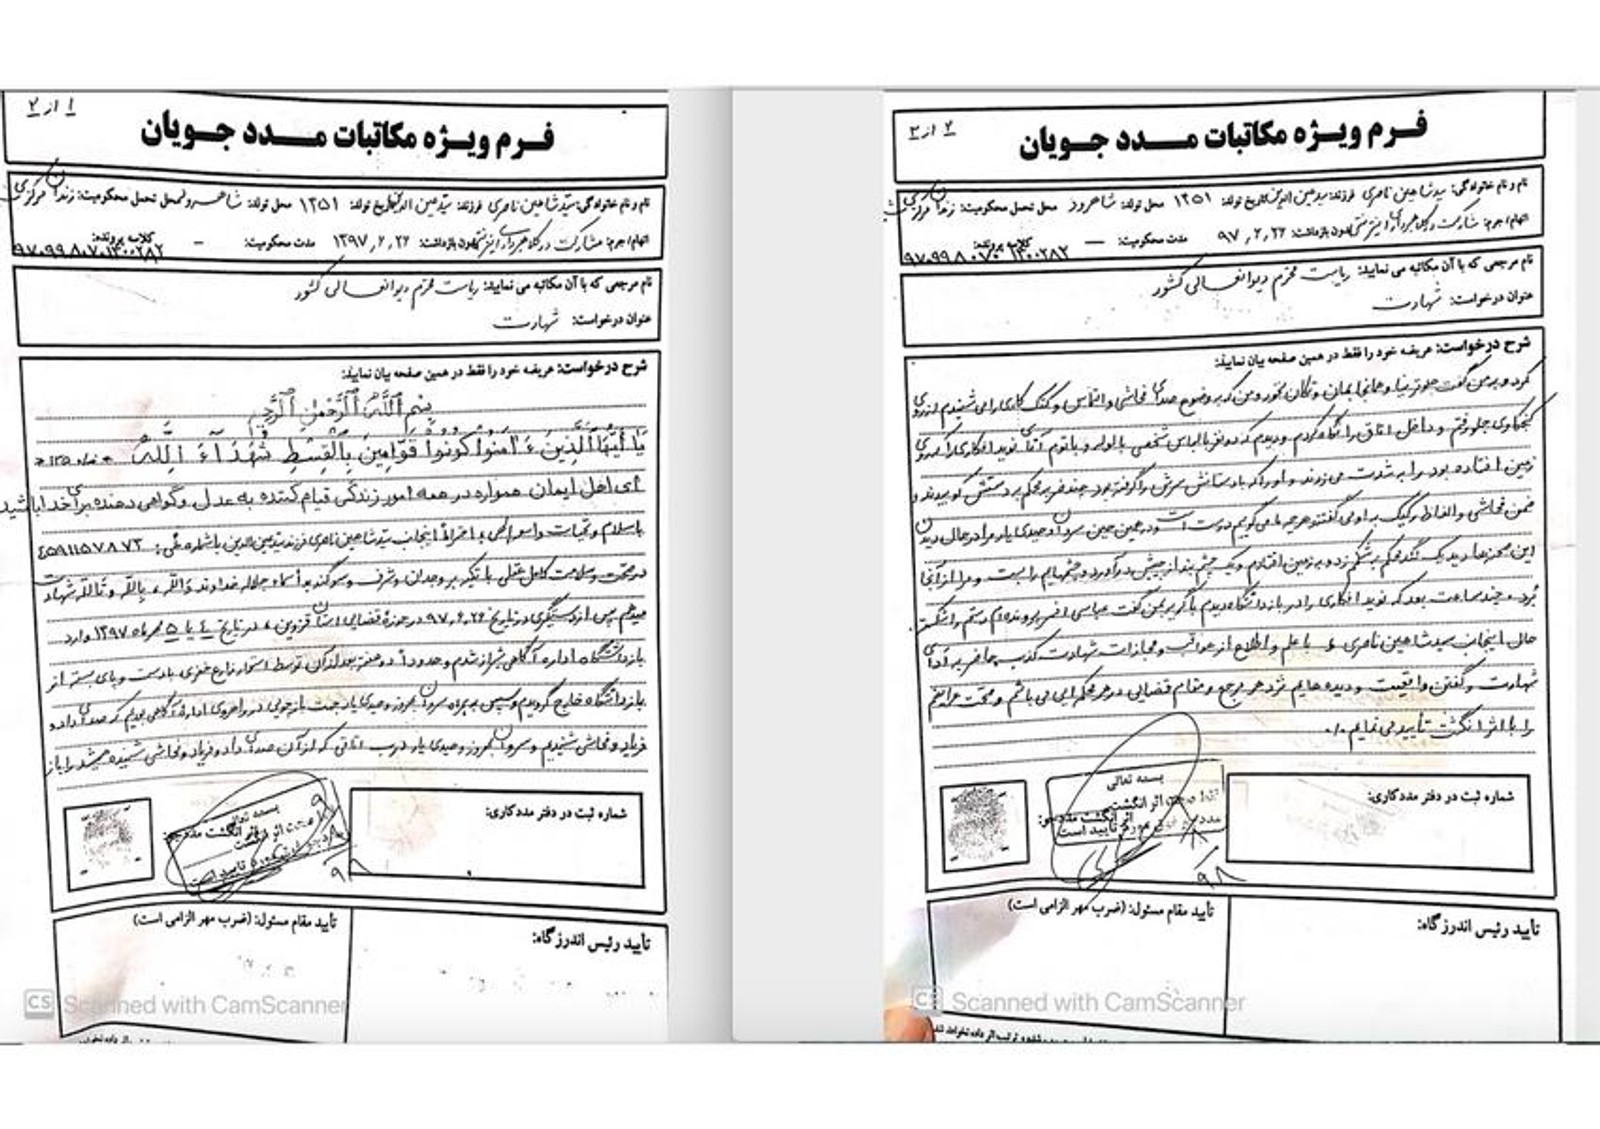 ۱ از ۲
فرم ویژه مکاتبات مدد جویان
نام و نام خانوادگی: سید شاهین ناصری فرزند: سیدمعین الدین تاریخ تولد: ۱۳۵۱ محل تولد: شاهرود محل تحمل محکومیت: زندان مرکزی
اتهام/جرم: مشارکت در کلاهبرداری اینترنتی بازداشت: ۱۳۹۷٫۶٫۲۶ مدت محکومیت: - کلاسه پرونده: ۹۷۰۹۹۸۰۷۰۱۳۰۰۲۸۲
نام مرجمی که با آن مکاتبه می نمایید: ریاست محترم دیوانعالی کشور
عنوان درخواست: شهادت
شرح درخواست: عریضه خود را فقط در همین صفحه بیان نمایید:
بِسْمِ اللَّهِ الرَّحْمَٰنِ الرَّحِيمِ
يَا أَيُّهَا الَّذِينَ ءَامَنُوا كُونُوا قَوَّامِينَ بِالْقِسْطِ شُهَدَآءَ لِلَّهِ
ای اهل ایمان همواره در همه امور زندگی قیام کننده به عدل و گواهی دهنده برای خدا باشید
باسلام و تحیات و احتراماً اینجانب سید شاهین ناصری فرزند سیدمعین الدین باشماره ملی: ۴۵۹۱۱۵۷۸۷۳
در صحت و سلامت کامل عقلی با تکیه بر وجدان و شرف و سوگند به اسماء جلاله خداوند والله، بالله و تالله شهادت
میدهم پس از دستگیری در تاریخ ۹۷٫۶٫۲۶ در حوزه قضایی استان قزوین، در تاریخ ۴ یا ۵ مهرماه ۱۳۹۷ وارد
بازداشتگاه اداره آگاهی شیراز شدم و حدوداً دو هفته بعد از آن توسط استوار زارع خفری با دست و پای بسته از
بازداشتگاه خارج گردیدم و سپس به همراه سروان بهروز وحیدی یا جهت بازجویی در راهروی اداره آگاهی بودیم که صدای داد و
فریاد و فحاشی شنیدیم و سروان بهروز وحیدی یا درب اتاقی که از آن صدای داد و فریاد و فحاشی شنیده میشد را باز
بسمه تعالی
شماره ثبت در دفتر مددکاری:
تأیید رئیس اندرزگاه:
تأیید مقام مسئول: (ضرب مهر الزامی است)
CS Scanned with CamScanner
۲ از ۲
فرم ویژه مکاتبات مدد جویان
نام و نام خانوادگی: سیدشاهین ناصری فرزند: سیدمعین الدین تاریخ تولد: ۱۳۵۱ محل تولد: شاهرود محل تحمل محکومیت: زندان مرکزی
اتهام/جرم: مشارکت در کلاهبرداری اینترنتی بازداشت: ۹۷٫۶٫۲۶ مدت محکومیت: — کلاسه پرونده: ۹۷۰۹۹۸۰۷۰۱۳۰۰۲۸۲
نام مرجمی که با آن مکاتبه می نمایید: ریاست محترم دیوانعالی کشور
عنوان درخواست: شهادت
شرح درخواست: عریضه خود را فقط در همین صفحه بیان نمایید:
کرد و به من گفت جلوتر نیا و همانجا بمان و تکان نخور و من که به وضوح صدای فحاشی و التماس و کتک کاری را می شنیدم از روی
کنجکاوی جلو رفتم و داخل اتاق را نگاه کردم و دیدم که دو نفر با لباس شخصی با لوله و باتوم آقای نوید افکاری را که روی
زمین افتاده بود را به شدت می زدند و او را که با دستانش سرش را گرفته بود چند ضربه محکم به دستش کوبیدند و
ضمن فحاشی و الفاظ رکیک به او می گفتند هرچه ما می گوییم درست است و در همین حین سروان وحیدی یا مرا در حال دیدن
این صحنه ها دید یک لگد محکم به شکمم زد و به زمین افتادم و یک چشم بند از جیبش درآورد و چشمهایم را بست و مرا از آنجا
برد. چند ساعت بعد که نوید افکاری را در بازداشتگاه دیدم با گریه بمن گفت عباسی افسر پرونده ام دستم را شکست
حال اینجانب سیدشاهین ناصری با علم و اطلاع از عواقب و مجازات شهادت کذب، حاضر به ادای
شهادت و گفتن واقعیت و دیده هایم نزد هر مرجع و مقام قضایی در هر محکمه ایی می باشم و صحت عرایضم
را با اثر انگشت تأیید می نمایم./.
بسمه تعالی
صحت اثر انگشت
مورد تأیید است
شماره ثبت در دفتر مددکاری:
تأیید رئیس اندرزگاه:
تأیید مقام مسئول: (ضرب مهر الزامی است)
CS Scanned with CamScanner